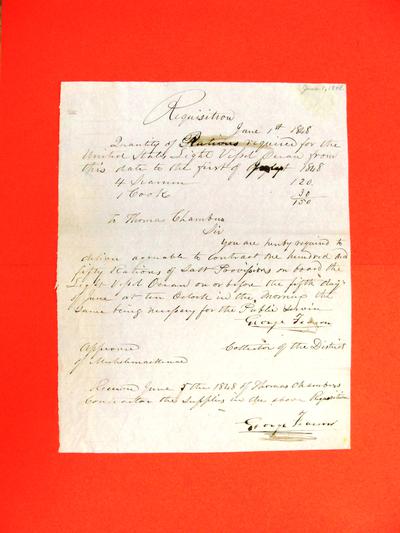 June 1, 1848
Requisition
June 1st 1848
Quantity of Rations required for the
United States Light Vessel Ocean from
this date to the first of 1848
4 Seamen 120
1 Cook 30
150
to Thomas Chambers
Sir
you are hereby required to
deliver agreeable to contract one hundred and
fifty Rations of Salt Provisions on board the
Light Vessel Ocean on or before the fifth day
of June at ten Oclock in the morning the
same being necessary for the Public Service
George
Approved Collector of the District
of Michilimackinac
Received June 5th 1848 of Thomas Chambers
Contractor the Supplies in the above Requisition
George